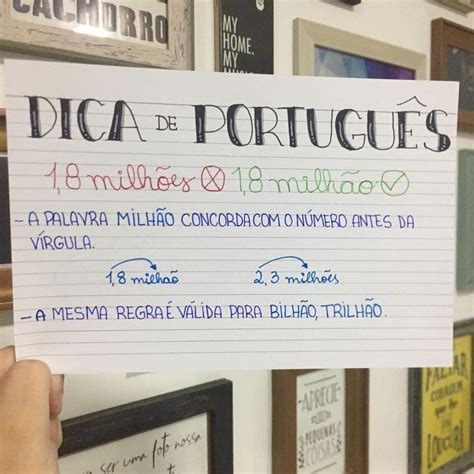 CACHORRO
MY
HOME,
MY
DICA DE PORTUGUÊS
1,8 milhões ⓧ 1,8 milhão ✓
- A PALAVRA MILHÃO CONCORDA COM O NÚMERO ANTES DA
VÍRGULA.
1,8 milhão 2,3 milhões
- A MESMA REGRA É VÁLIDA PARA BILHÃO, TRILHÃO.
ser uma foto nossa
APRECIE
PEQUENAS
COISAS
FALTAR
CORAGEM
LOUCURA